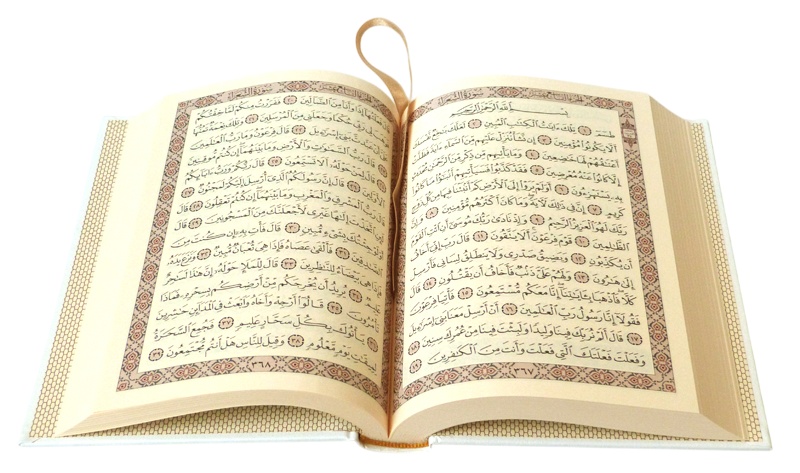 سُورَةُ الشُّعَرَاءِ
بِسْمِ ٱللَّهِ ٱلرَّحْمَٰنِ ٱلرَّحِيمِ
طسٓمٓ ١ تِلْكَ ءَايَٰتُ ٱلْكِتَٰبِ ٱلْمُبِينِ ٢ لَعَلَّكَ بَٰخِعٌ نَّفْسَكَ
أَلَّا يَكُونُوا۟ مُؤْمِنِينَ ٣ إِن نَّشَأْ نُنَزِّلْ عَلَيْهِم مِّنَ ٱلسَّمَآءِ ءَايَةً فَظَلَّتْ
أَعْنَٰقُهُمْ لَهَا خَٰضِعِينَ ٤ وَمَا يَأْتِيهِم مِّن ذِكْرٍ مِّنَ ٱلرَّحْمَٰنِ مُحْدَثٍ
إِلَّا كَانُوا۟ عَنْهُ مُعْرِضِينَ ٥ فَقَدْ كَذَّبُوا۟ فَسَيَأْتِيهِمْ أَنۢبَٰٓؤُا۟ مَا كَانُوا۟
بِهِۦ يَسْتَهْزِءُونَ ٦ أَوَلَمْ يَرَوْا۟ إِلَى ٱلْأَرْضِ كَمْ أَنۢبَتْنَا فِيهَا مِن كُلِّ زَوْجٍ
كَرِيمٍ ٧ إِنَّ فِى ذَٰلِكَ لَءَايَةً وَمَا كَانَ أَكْثَرُهُم مُّؤْمِنِينَ ٨ وَإِنَّ
رَبَّكَ لَهُوَ ٱلْعَزِيزُ ٱلرَّحِيمُ ٩ وَإِذْ نَادَىٰ رَبُّكَ مُوسَىٰٓ أَنِ ٱئْتِ ٱلْقَوْمَ
ٱلظَّٰلِمِينَ ١٠ قَوْمَ فِرْعَوْنَ أَلَا يَتَّقُونَ ١١ قَالَ رَبِّ إِنِّىٓ أَخَافُ
أَن يُكَذِّبُونِ ١٢ وَيَضِيقُ صَدْرِى وَلَا يَنطَلِقُ لِسَانِى فَأَرْسِلْ
إِلَىٰ هَٰرُونَ ١٣ وَلَهُمْ عَلَىَّ ذَنۢبٌ فَأَخَافُ أَن يَقْتُلُونِ ١٤ قَالَ
كَلَّا فَٱذْهَبَا بِـَٔايَٰتِنَآ إِنَّا مَعَكُم مُّسْتَمِعُونَ ١٥ فَأْتِيَا فِرْعَوْنَ
فَقُولَآ إِنَّا رَسُولُ رَبِّ ٱلْعَٰلَمِينَ ١٦ أَنْ أَرْسِلْ مَعَنَا بَنِىٓ إِسْرَٰٓءِيلَ
١٧ قَالَ أَلَمْ نُرَبِّكَ فِينَا وَلِيدًا وَلَبِثْتَ فِينَا مِنْ عُمُرِكَ سِنِينَ ١٨
وَفَعَلْتَ فَعْلَتَكَ ٱلَّتِى فَعَلْتَ وَأَنتَ مِنَ ٱلْكَٰفِرِينَ ١٩
٣٦٧
سُورَةُ الشُّعَرَاءِ
قَالَ فَعَلْتُهَآ إِذًا وَأَنَا۠ مِنَ ٱلضَّآلِّينَ ٢٠ فَفَرَرْتُ مِنكُمْ لَمَّا خِفْتُكُمْ
فَوَهَبَ لِى رَبِّى حُكْمًا وَجَعَلَنِى مِنَ ٱلْمُرْسَلِينَ ٢١ وَتِلْكَ نِعْمَةٌ تَمُنُّهَا
عَلَىَّ أَنْ عَبَّدتَّ بَنِىٓ إِسْرَٰٓءِيلَ ٢٢ قَالَ فِرْعَوْنُ وَمَا رَبُّ ٱلْعَٰلَمِينَ
٢٣ قَالَ رَبُّ ٱلسَّمَٰوَٰتِ وَٱلْأَرْضِ وَمَا بَيْنَهُمَآ إِن كُنتُم مُّوقِنِينَ
٢٤ قَالَ لِمَنْ حَوْلَهُۥٓ أَلَا تَسْتَمِعُونَ ٢٥ قَالَ رَبُّكُمْ وَرَبُّ ءَابَآئِكُمُ
ٱلْأَوَّلِينَ ٢٦ قَالَ إِنَّ رَسُولَكُمُ ٱلَّذِىٓ أُرْسِلَ إِلَيْكُمْ لَمَجْنُونٌ ٢٧
قَالَ رَبُّ ٱلْمَشْرِقِ وَٱلْمَغْرِبِ وَمَا بَيْنَهُمَآ إِن كُنتُمْ تَعْقِلُونَ ٢٨ قَالَ
لَئِنِ ٱتَّخَذْتَ إِلَٰهًا غَيْرِى لَأَجْعَلَنَّكَ مِنَ ٱلْمَسْجُونِينَ ٢٩ قَالَ
أَوَلَوْ جِئْتُكَ بِشَىْءٍ مُّبِينٍ ٣٠ قَالَ فَأْتِ بِهِۦٓ إِن كُنتَ مِنَ
ٱلصَّٰدِقِينَ ٣١ فَأَلْقَىٰ عَصَاهُ فَإِذَا هِىَ ثُعْبَانٌ مُّبِينٌ ٣٢ وَنَزَعَ يَدَهُۥ
فَإِذَا هِىَ بَيْضَآءُ لِلنَّٰظِرِينَ ٣٣ قَالَ لِلْمَلَإِ حَوْلَهُۥٓ إِنَّ هَٰذَا لَسَٰحِرٌ
عَلِيمٌ ٣٤ يُرِيدُ أَن يُخْرِجَكُم مِّنْ أَرْضِكُم بِسِحْرِهِۦ فَمَاذَا
تَأْمُرُونَ ٣٥ قَالُوٓا۟ أَرْجِهْ وَأَخَاهُ وَٱبْعَثْ فِى ٱلْمَدَآئِنِ حَٰشِرِينَ
٣٦ يَأْتُوكَ بِكُلِّ سَحَّارٍ عَلِيمٍ ٣٧ فَجُمِعَ ٱلسَّحَرَةُ
لِمِيقَٰتِ يَوْمٍ مَّعْلُومٍ ٣٨ وَقِيلَ لِلنَّاسِ هَلْ أَنتُم مُّجْتَمِعُونَ ٣٩
٣٦٨